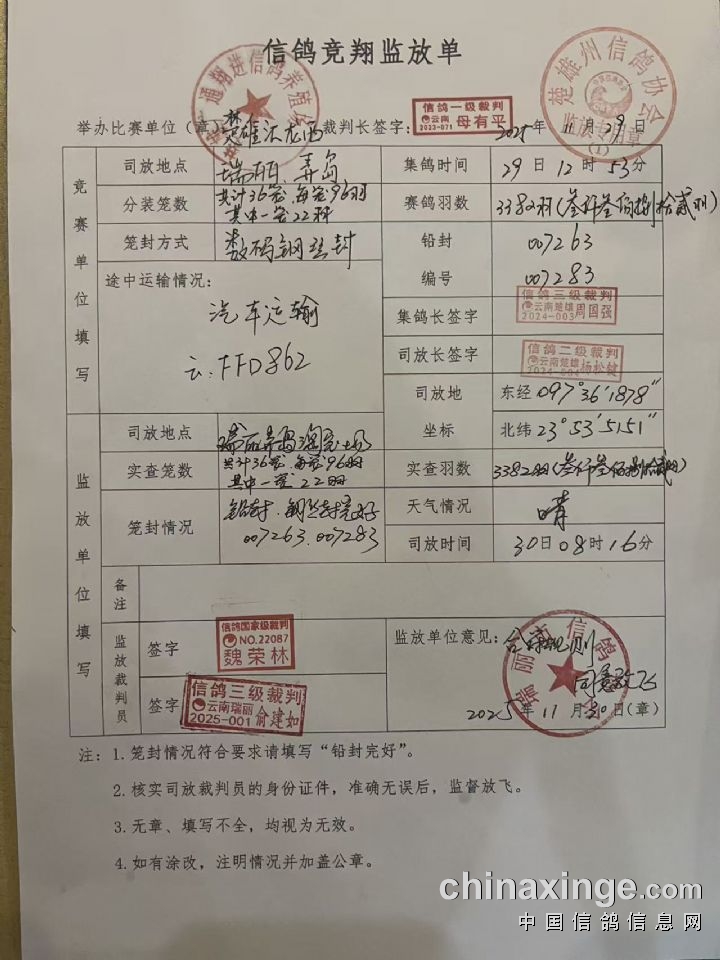 信鸽竞翔监放单
楚雄州信鸽协会
监放专用章
(1)
举办比赛单位（章）
裁判长签字：
信鸽一级裁判
云南
2023-071 母有平
2025年11月29日
竞赛单位填写
司放地点 瑞丽.弄岛
集鸽时间 29日12时53分
分装笼数 共计36笼.每笼96羽
其中一笼22羽
赛鸽羽数 3382羽(叁仟叁佰捌拾贰羽)
笼封方式 数码钢丝封
铅封 007263
编号 007283
途中运输情况：
汽车运输
云.FFD862
集鸽长签字
信鸽三级裁判
云南楚雄
2024-003 周国强
司放长签字
信鸽二级裁判
云南楚雄
杨松健
司放地
坐标
东经 097°36′1878″
北纬 23°53′5151″
监放单位填写
司放地点
实查笼数 共计36笼.每笼96羽
其中一笼22羽
实查羽数 3382羽(叁仟叁佰捌拾贰羽)
笼封情况 铅封.钢丝封完好
007263.007283
天气情况 晴
司放时间 30日08时16分
备注
监放裁判员
签字
信鸽国家级裁判
NO.22087
魏荣林
签字
信鸽三级裁判
云南瑞丽
2025-001 俞建如
监放单位意见：
2025年11月30日(章)
注：1.笼封情况符合要求请填写“铅封完好”。
2.核实司放裁判员的身份证件，准确无误后，监督放飞。
3.无章、填写不全，均视为无效。
4.如有涂改，注明情况并加盖公章。
chinaxinge.com
中国信鸽信息网